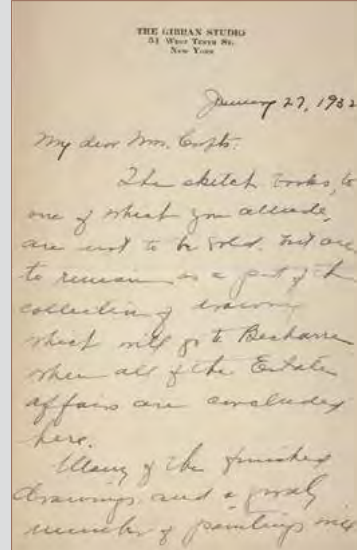 THE GIBRAN STUDIO
51 WEST TENTH ST.
NEW YORK
January 27, 1932
My dear Mrs. Crofts:
The sketch books, to
one of which you allude,
are not to be sold. but are
to remain as a part of the
collection of drawings
which will go to Becharre
when all of the Estate
affairs are concluded
here.
Many of the finished
drawings and a
number of paintings will